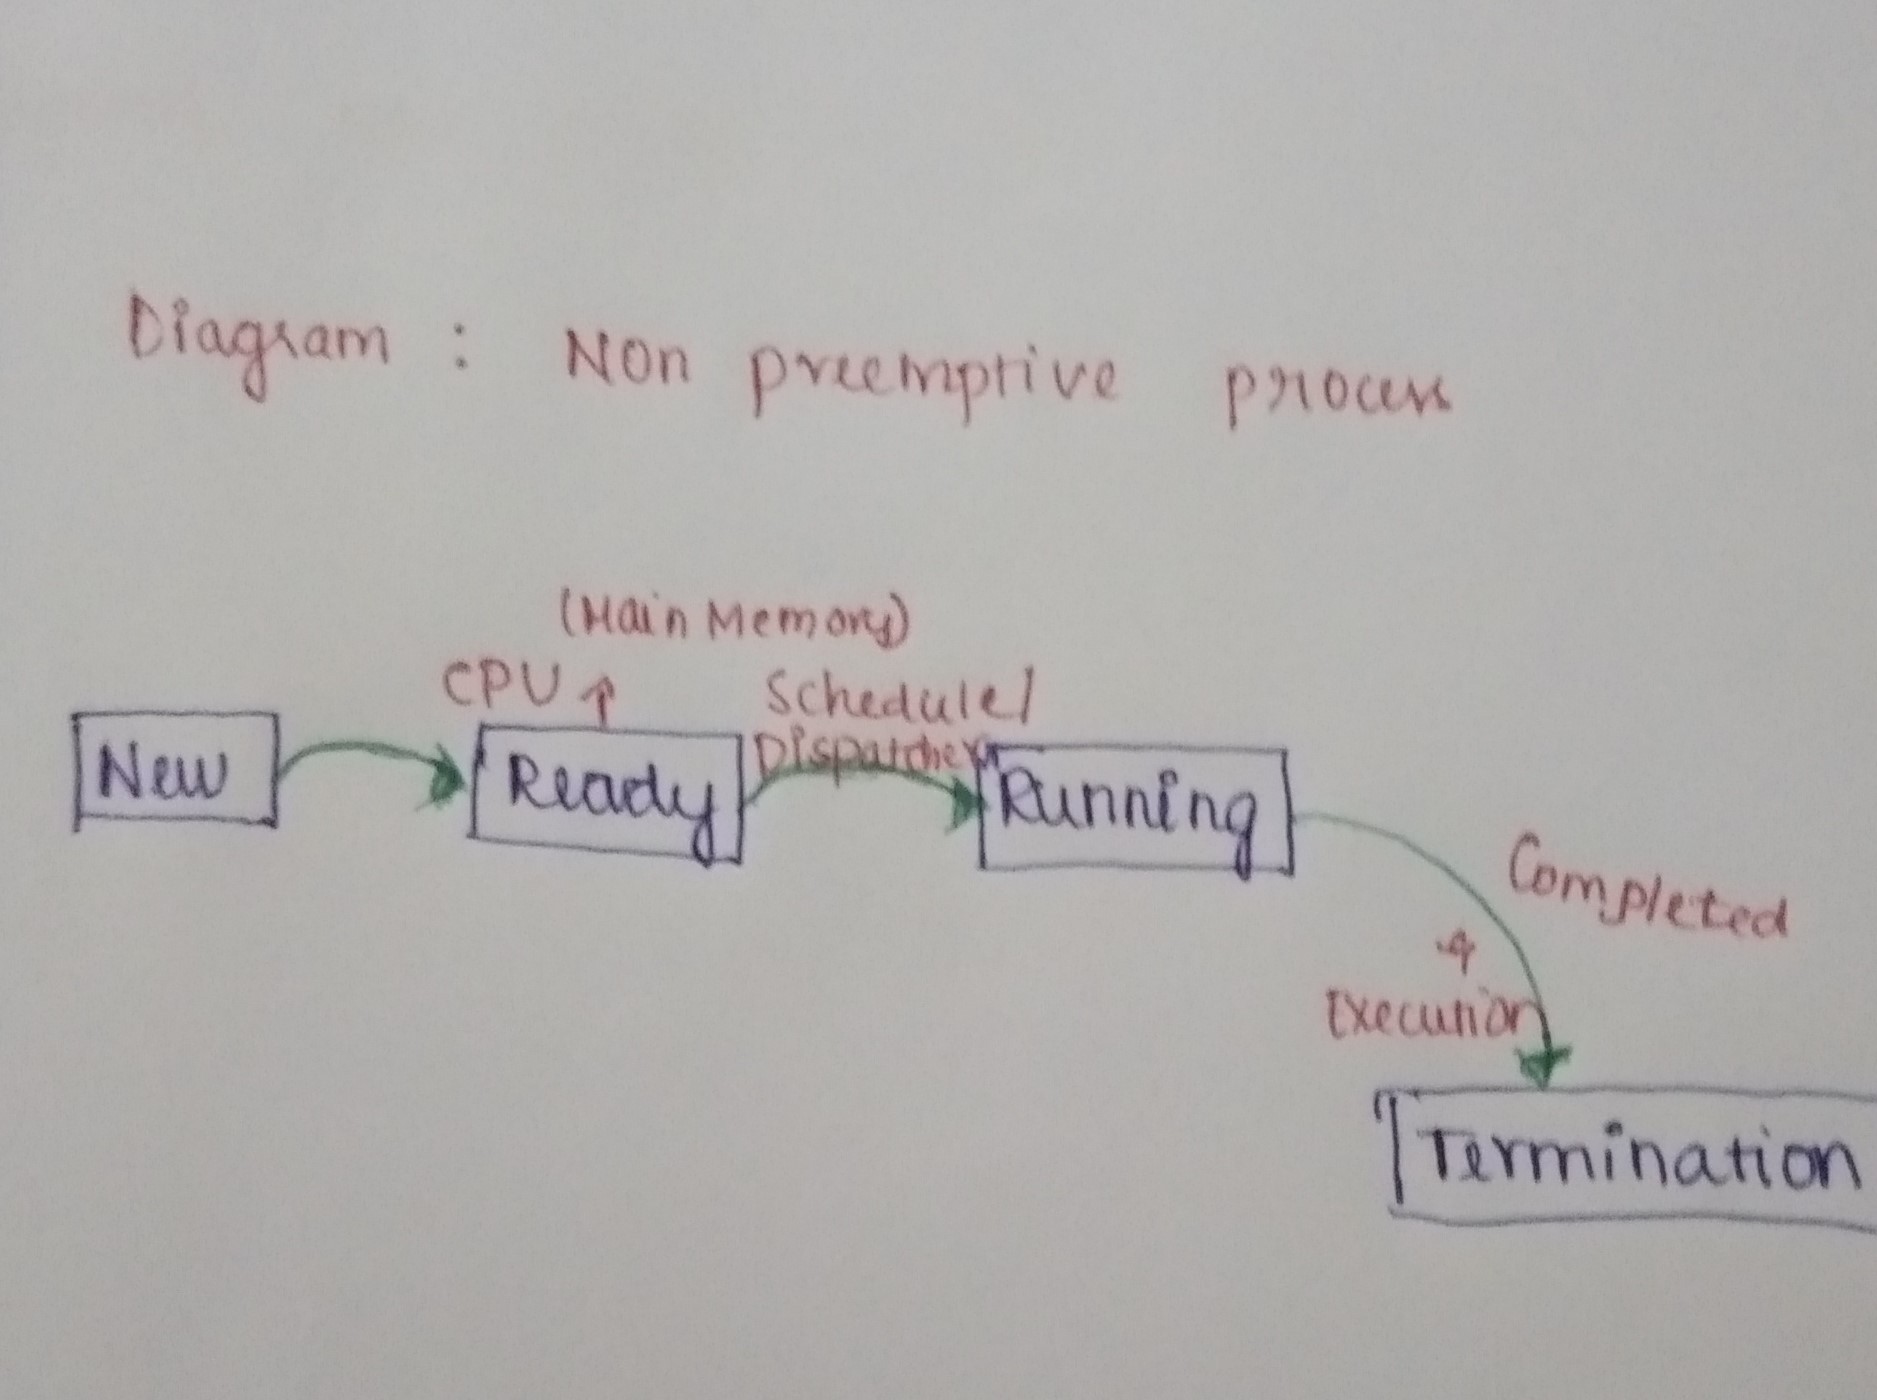 Diagram : Non preemptive process
(Main Memory)
CPU ↑ Schedule/
Dispatcher
New Ready Running
Completed
Execution
Termination